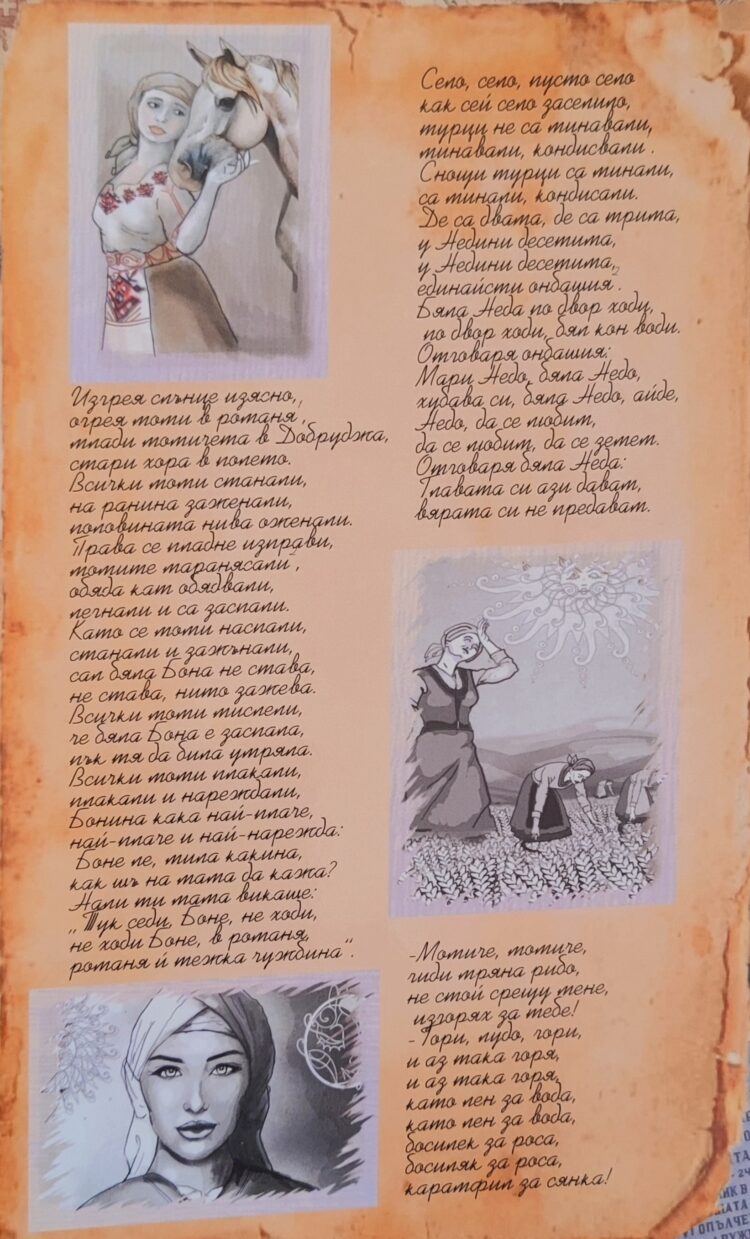 Изгрея слънце изясно,
огрея моми в романя,
млади момичета в Добруджа,
стари хора в полето.
Всички моми станали,
на ранина заженали,
половината нива оженали.
Права се пладне изправи,
момите маранясали,
обяда кат обядвали,
легнали и са заспали.
Като се моми наспали,
станали и зажънали,
сал бяла Бона не става,
не става, нито зажева.
Всички моми мислели,
че бяла Бона е заспала,
пък тя да била умряла.
Всички моми плакали,
плакали и нареждали,
Бонина кака най-плаче,
най-плаче и най-нарежда:
Боне ле, мила какина,
как шъ на мама да кажа?
Нали ти мама викаше:
„Тук седи, Боне, не ходи,
не ходи Боне, в романя,
романя й тежка чужбина".
Село, село, пусто село
как сей село заселило,
турци не са минавали,
минавали, кондисвали.
Снощи турци са минали,
са минали, кондисали.
Де са двата, де са трима,
у Недини десетима,
у Недини десетима,
единайсти онбашия.
Бяла Неда по двор ходи,
по двор ходи, бял кон води.
Отговаря онбашия:
Мари Недо, бяла Недо,
хубава си, бяла Недо, айде,
Недо, да се любим,
да се любим, да се земем.
Отговаря бяла Неда:
Главата си ази давам,
вярата си не предавам.
-Момиче, момиче,
гиди мряна рибо,
не стой срещу мене,
изгорях за тебе!
- Гори, лудо, гори,
и аз така горя,
и аз така горя,
като лен за вода,
като лен за вода,
босилек за роса,
босиляк за роса,
карамфил за сянка!